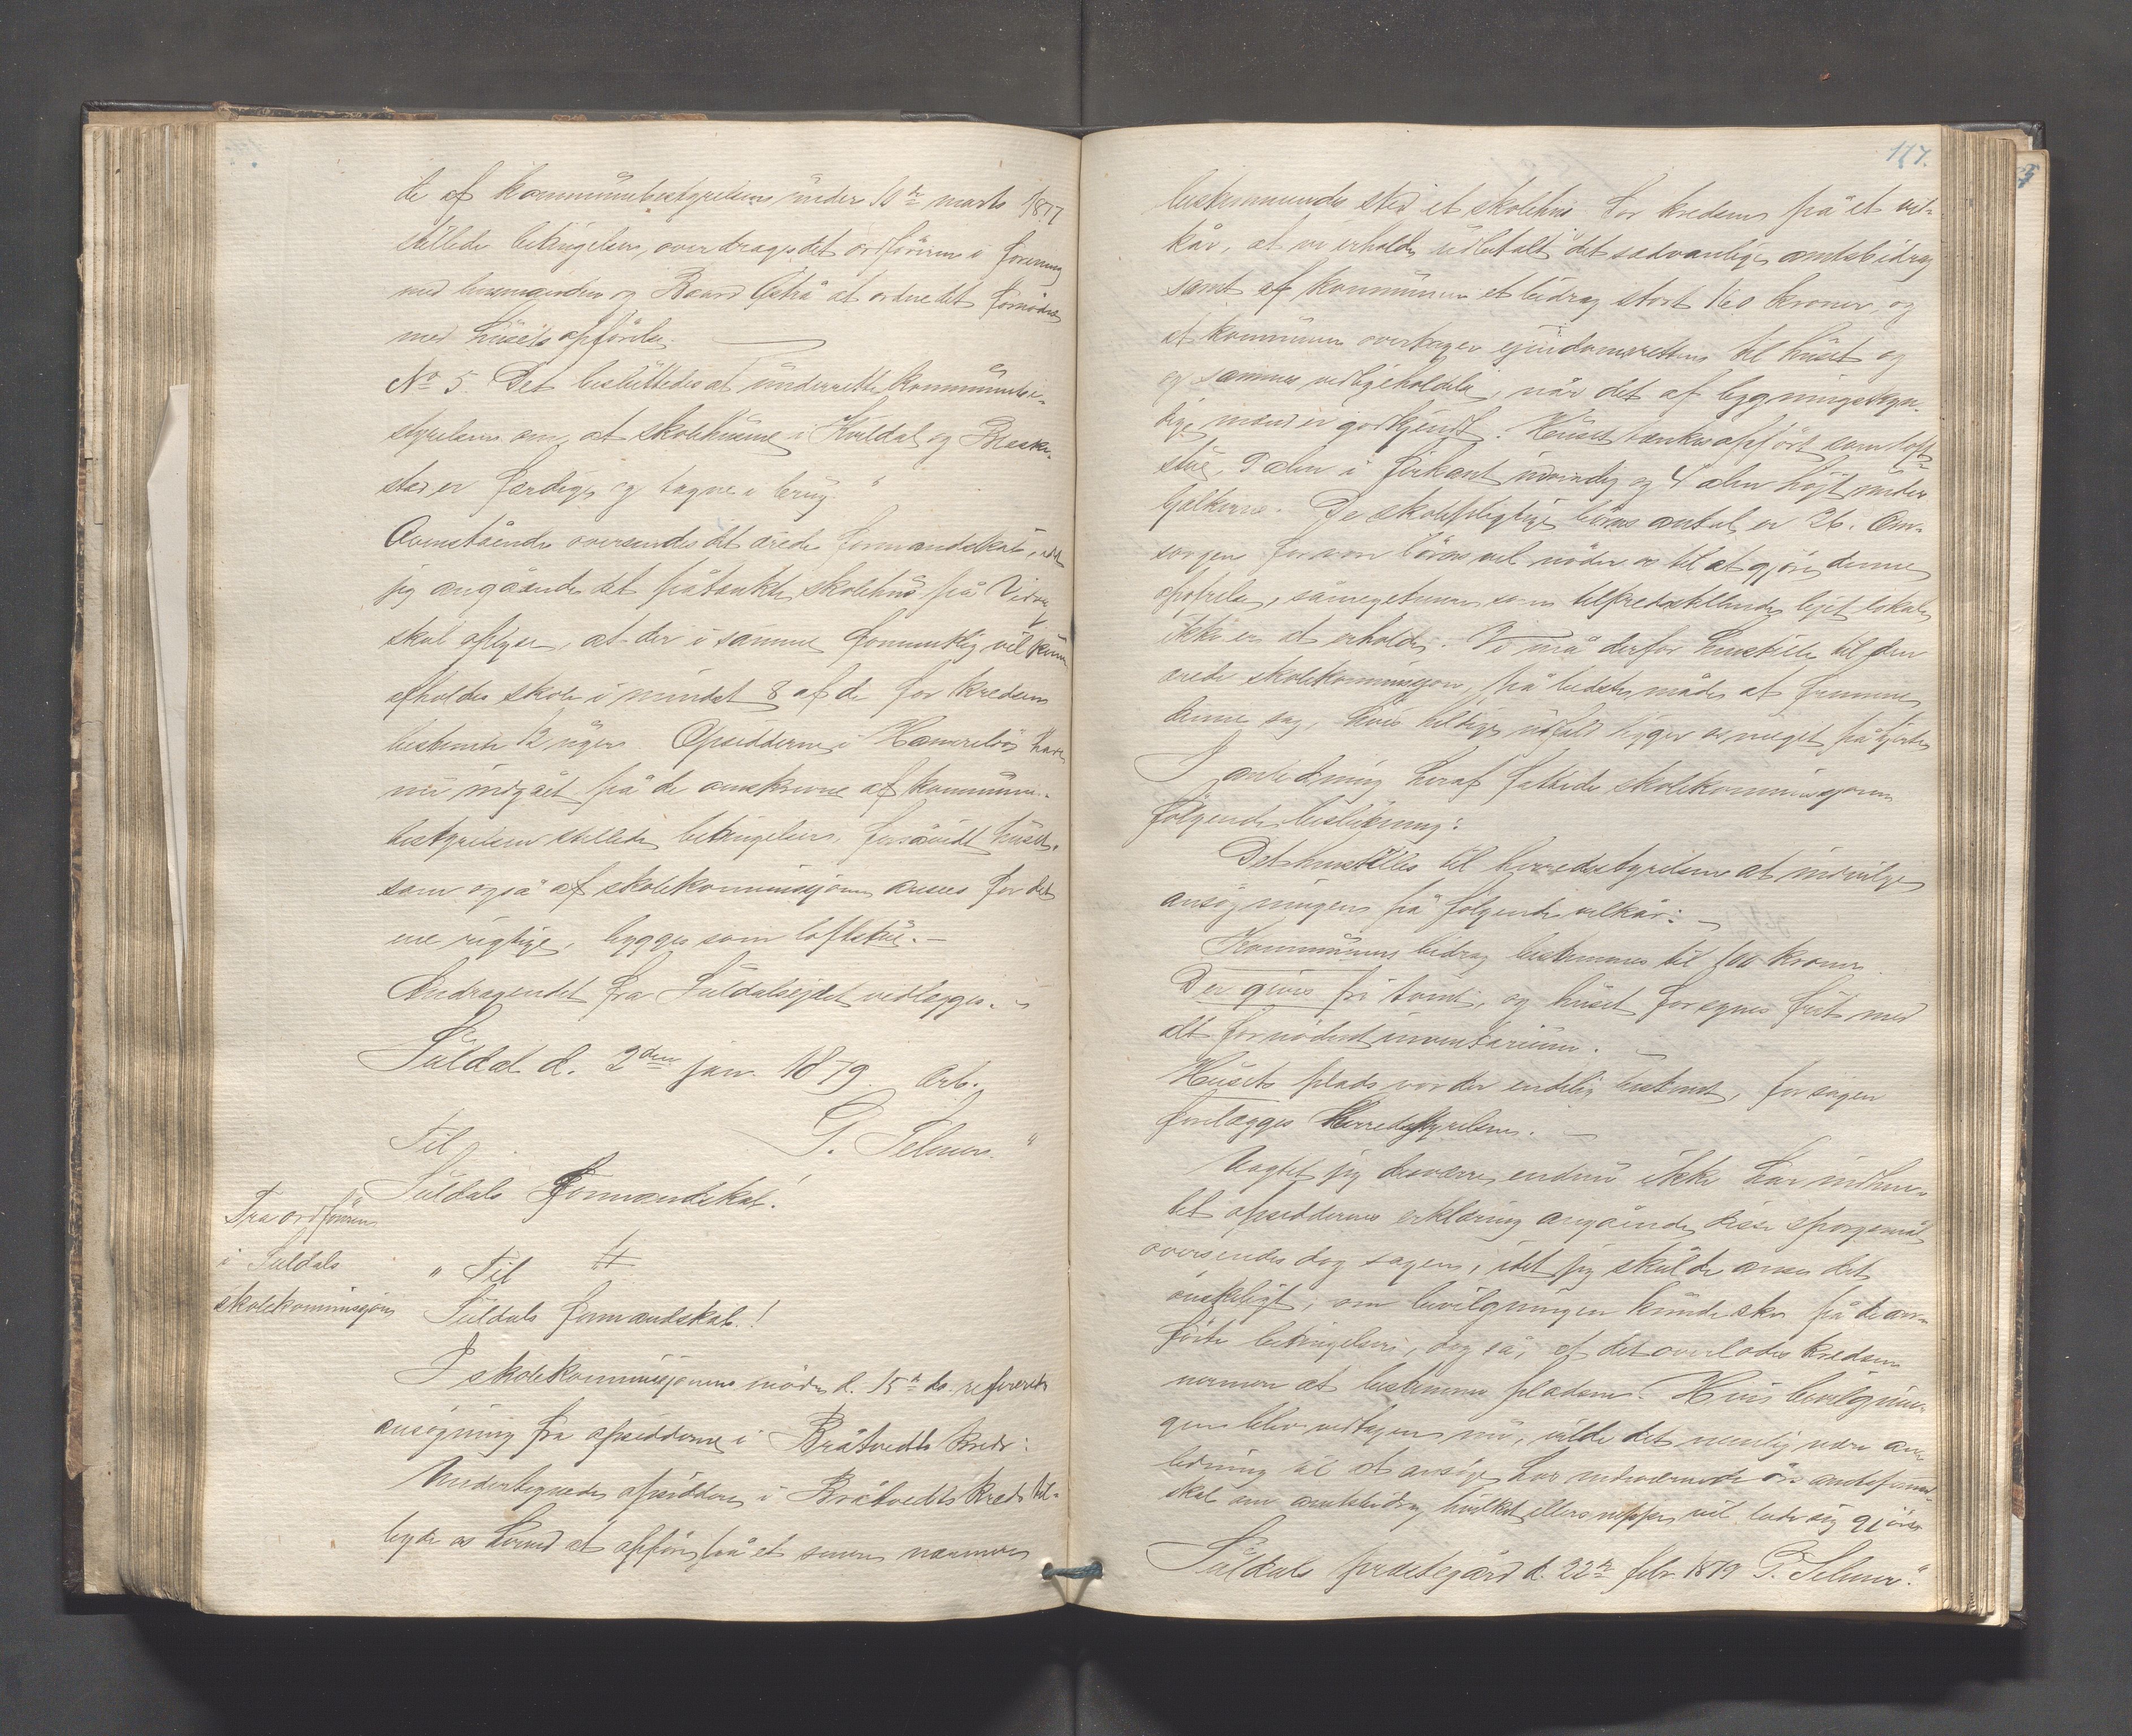 te af kommunebestyrelsen under 10de marts 1877
stillede betingelser, overdrages det ordföreren i forening
med lensmanden og Baard at ordne det fornödne
med husets opförelse.
No 5 Det besluttedes at underrette kommunebe-
styrelsen om, at skolehusene i Kvildal og
stad er færdige og tagne i brug."
Ovenstående oversendes det ærede formandskab, idet
jeg angående det påtænkte skolehus på
skal oplyse, at der i samme formentlig vil kunne
afholdes skole i mindst 8 af de for kredsen
bestemte 12 uger. Opsidderne i have
nu indgået på de omskrevne af kommune-
bestyrelsen stillede betingelser, forsåvidt huset,
som også af skolekommissjonen ansees for det
ene rigtige, bygges som loftstue.-
Andragendet fra vedlægges.
Suldal d. 2den jan. 1879. Ærb.
G. Selmer."
Til
Suldals Formandskab!
Fra ordföreren
i Suldals
skolekommissjon
" Til
Suldals formandskab!
I skolekommissjonens möde d. 15de ds. refereredes
ansögning fra opsidderne i Bråtvedts kreds:
Undertegnede opsiddere i Bråtvedts kreds til-
byde os herved at opföre på et senere nærmere
117.
bestemmende sted et skolehus for kredsen på et vil-
kår, at vi erholde udbetalt det sædvanlige amtsbidrag
samt af kommunen et bidrag stort 160 kroner, og
at kommunen overtager ejendomsretten til huset og
og sammes vedligeholdelse, når det af bygningskyn-
dige mænd er godkjendt. Huset tænkes opfört som loft-
stue, 9 alen i firkant indvendig og 4 alen højt under
bjælkerne. De skolepligtige börns antal er 26. Om-
sorgen for vore börns vel nöder os til at gjöre denne
opofrelse, såmegetmere som tilfredsstillende lejet lokale
ikke er at erholde. Vi må derfor henstille til den
ærede skolekommissjon på bedste måde at fremme
denne sag, hvis heldige udfald ligger os meget på hjerte
I anledning heraf fattede skolekommissjonen
fölgende beslutning:
Det henstilles til herredsstyrelsen at indvilge
ansögningen på fölgende vilkår:
Kommunens bidrag bestemmes til 100 kroner.
Der gives fri tomt, og huset forsynes frit med
alt fornödent inventarium.
Husets plads vorder endelig bestemt, för sagen
forelægges Herredsstyrelsen.
Uagtet jeg desværre endnu ikke har indhen-
tet opsiddernes erklæring angående disse spörgsmål
oversendes dog sagen, idet jeg skulde anse det
önskeligt, om bevilgningen kunde ske på de an-
förte betingelser, dog så, at det overlodes kredsen
nærmere at bestemme pladsen. Hvis bevilgnin-
gen blev vedtagen nu, vilde det nemlig være an-
ledning til at ansöge hos indeværende års amtsformand-
skab om amtsbidrag, hvilket ellers neppe vil lade sig gjöre
Suldals præstegård d. 22de febr. 1879 G. Selmer."